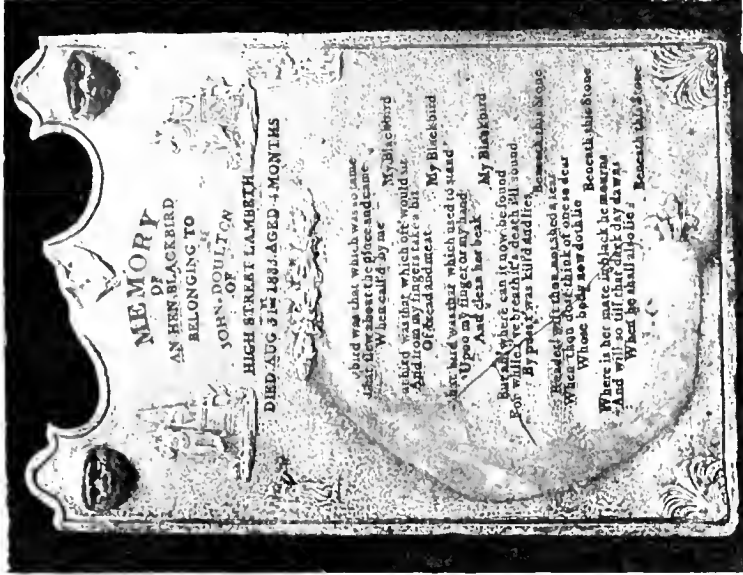 MEMORY
OF
AN HEN BLACKBIRD
BELONGING TO
JOHN DOULTON
OF
HIGH STREET LAMBETH
DIED AUG 31st AGED 4 MONTHS
bird was that which was so tame
that flew about the place and came
When call'd by me My Blackbird
bird was that which oft would sit
And from my fingers take a bit
Of bread and meat My Blackbird
bird was that which used to stand
Upon my finger or my hand
And clean her beak My Blackbird
But ah where can it now be found
For while I've breath it's death I'll sound
By was kill'd and lies Beneath this Stone
Reader wilt thou not shed a tear
When thou dost think of one so dear
Whose body now doth lie Beneath this Stone
Where is her mate in black he mourns
And will so till that dark day
When he shall also lie Beneath this Stone